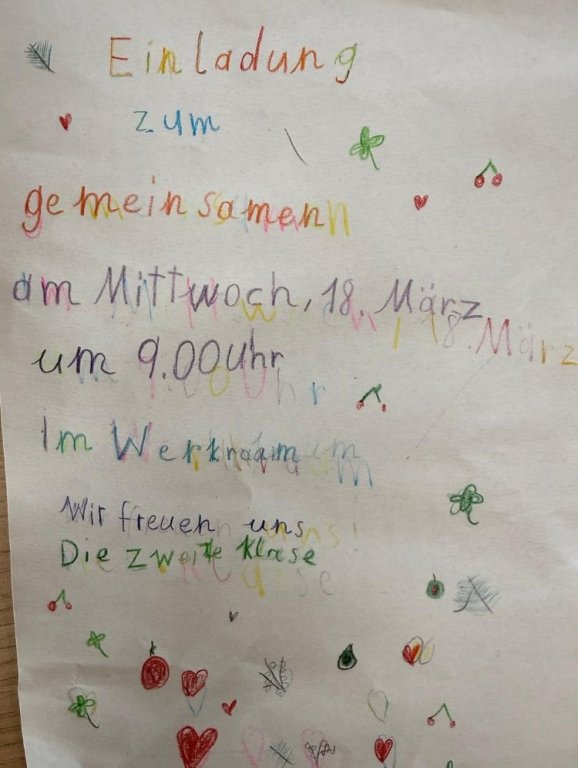 Einladung
zum
gemeinsamen
am Mittwoch, 18. März
um 9.00 Uhr
Im Werkraum
Wir freuen uns
Die zweite Klase